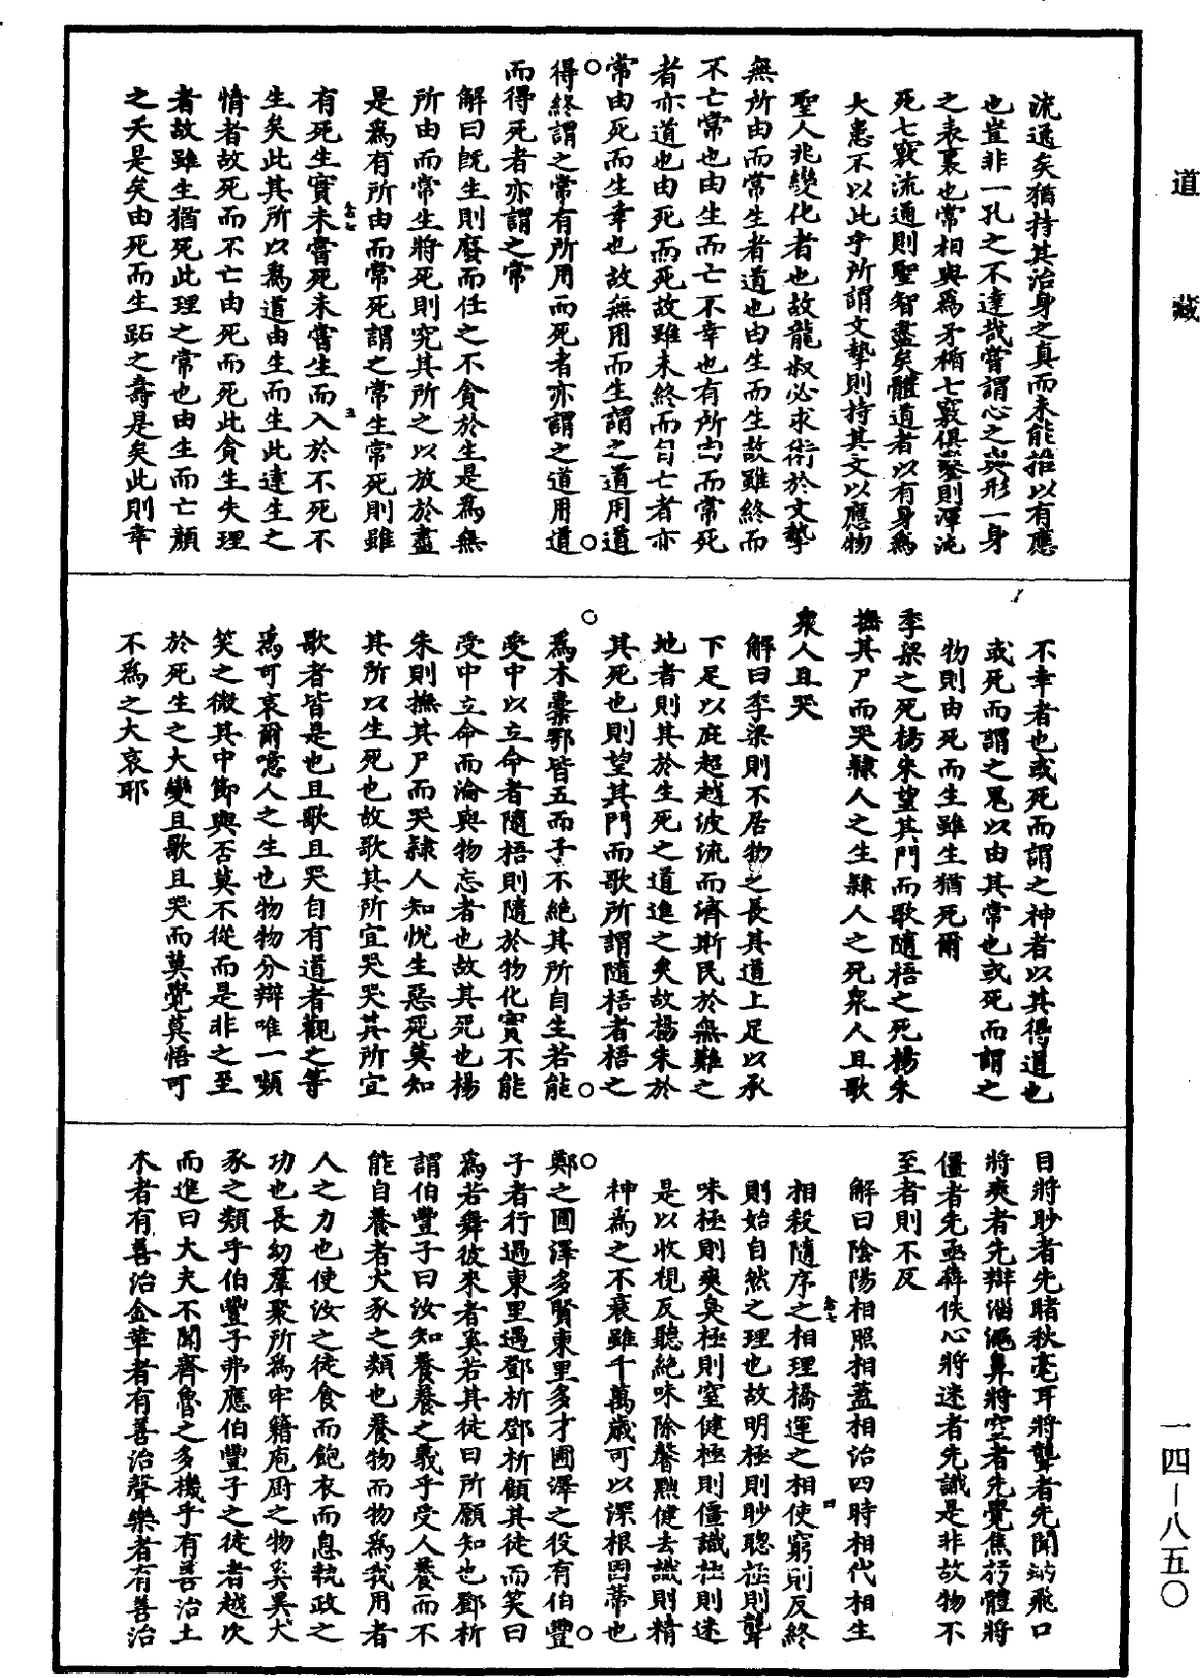 道藏
流通矣猶持其治身之真而未能推以有應
也豈非一孔之不達哉嘗謂心之與形一身
之表裏也常相與爲矛楯七竅俱鑿則渾沌
死七竅流通則聖智盡矣體道者以有身爲
大患不以此乎所謂文摯則持其文以應物
聖人兆變化者也故龍叔必求術於文摯
無所由而常生者道也由生而生故雖終而
不亡常也由生而亡不幸也有所由而常死
者亦道也由死而死故雖未終而自亡者亦
常由死而生幸也故無用而生謂之道用道
得終謂之常有所用而死者亦謂之道用道
而得死者亦謂之常
解曰既生則廢而任之不貪於生是爲無
所由而常生將死則究其所之以放於盡
是爲有所由而常死謂之常生常死則雖
有死生實未嘗死未嘗生而入於不死不
生矣此其所以爲道由生而生此達生之
情者故死而不亡由死而死此貪生失理
者故雖生猶死此理之常也由生而亡顔
之夭是矣由死而生跖之壽是矣此則幸
不幸者也或死而謂之神者以其得道也
或死而謂之鬼以由其常也或死而謂之
物則由死而生雖生猶死爾
季梁之死楊朱望其門而歌隨梧之死楊朱
撫其尸而哭隸人之生隸人之死衆人且歌
衆人且哭
解曰季梁則不居物之長其道上足以承
下足以庇超越波流而濟斯民於無難之
地者則其於生死之道進之矣故楊朱於
其死也則望其門而歌所謂隨梧者梧之
爲木橐鄂皆五而子不絶其所自生若能
受中以立命者隨梧則隨於物化實不能
受中立命而淪與物忘者也故其死也楊
朱則撫其尸而哭隸人知悅生惡死莫知
其所以生死也故歌其所宜哭哭其所宜
歌者皆是也且歌且哭自有道者觀之等
爲可哀爾噫人之生也物物分辯唯一嚬
笑之微其中節與否莫不從而是非之至
於死生之大變且歌且哭而莫覺莫悟可
不爲之大哀耶
目將眇者先睹秋毫耳將聾者先聞蚋飛口
將爽者先辯淄澠鼻將窒者先覺焦朽體將
僵者先亟犇佚心將迷者先識是非故物不
至者則不反
解曰陰陽相照相蓋相治四時相代相生
相殺隨序之相理橋運之相使窮則反終
則始自然之理也故明極則眇聰極則聾
味極則爽臭極則窒健極則僵識極則迷
是以收視反聽絶味除馨黜健去識則精
神爲之不衰雖千萬歲可以深根固蔕也
鄭之圃澤多賢東里多才圃澤之役有伯豐
子者行過東里遇鄧析鄧析顧其徒而笑曰
爲若舞彼來者奚若其徒曰所願知也鄧析
謂伯豐子曰汝知養養之義乎受人養而不
能自養者犬豕之類也養物而物爲我用者
人之力也使汝之徒食而飽衣而息執政之
功也長幼羣聚所爲牢籍庖厨之物奚異犬
豕之類乎伯豐子弗應伯豐子之徒者越次
而進曰大夫不聞齊魯之多機乎有善治土
木者有善治金革者有善治聲樂者有善治
一四—八五〇